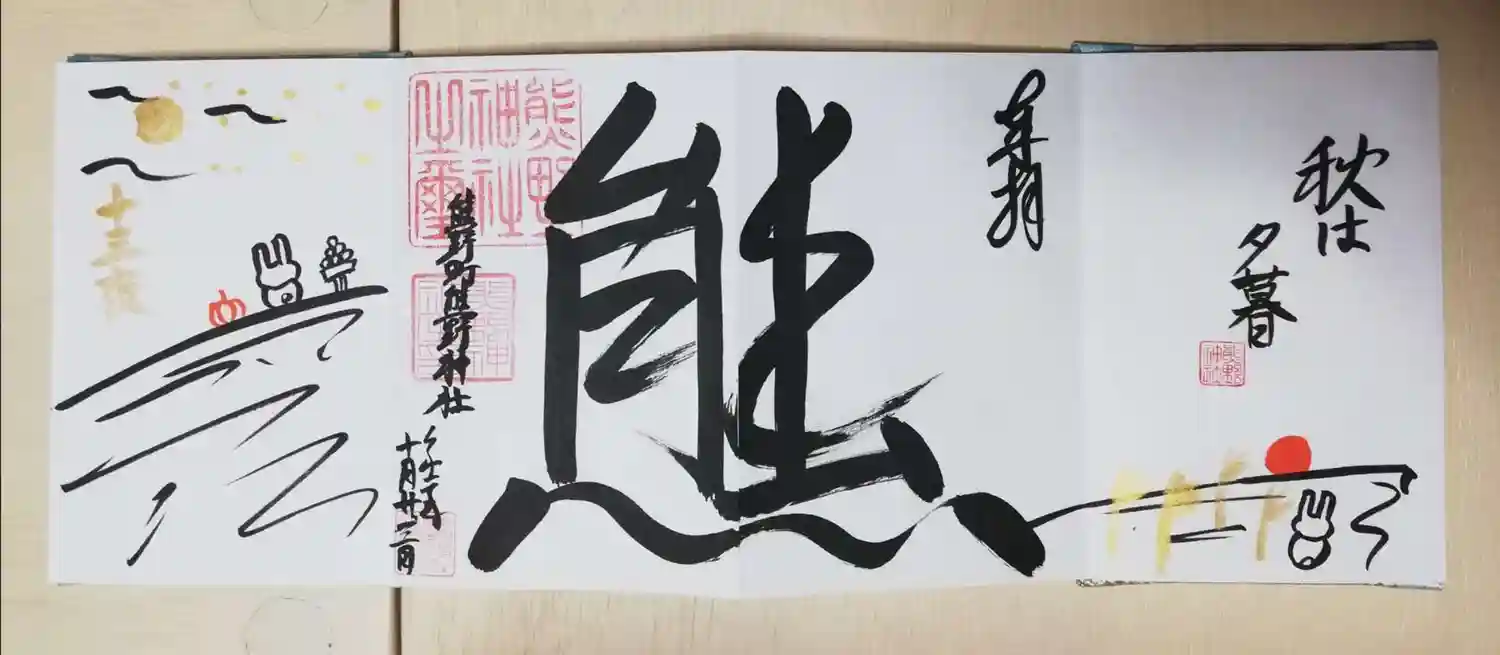 秋は
夕暮
熊野
神社
奉拝
熊
熊野
神社
之璽
熊野町熊野神社
十月廿
十三夜